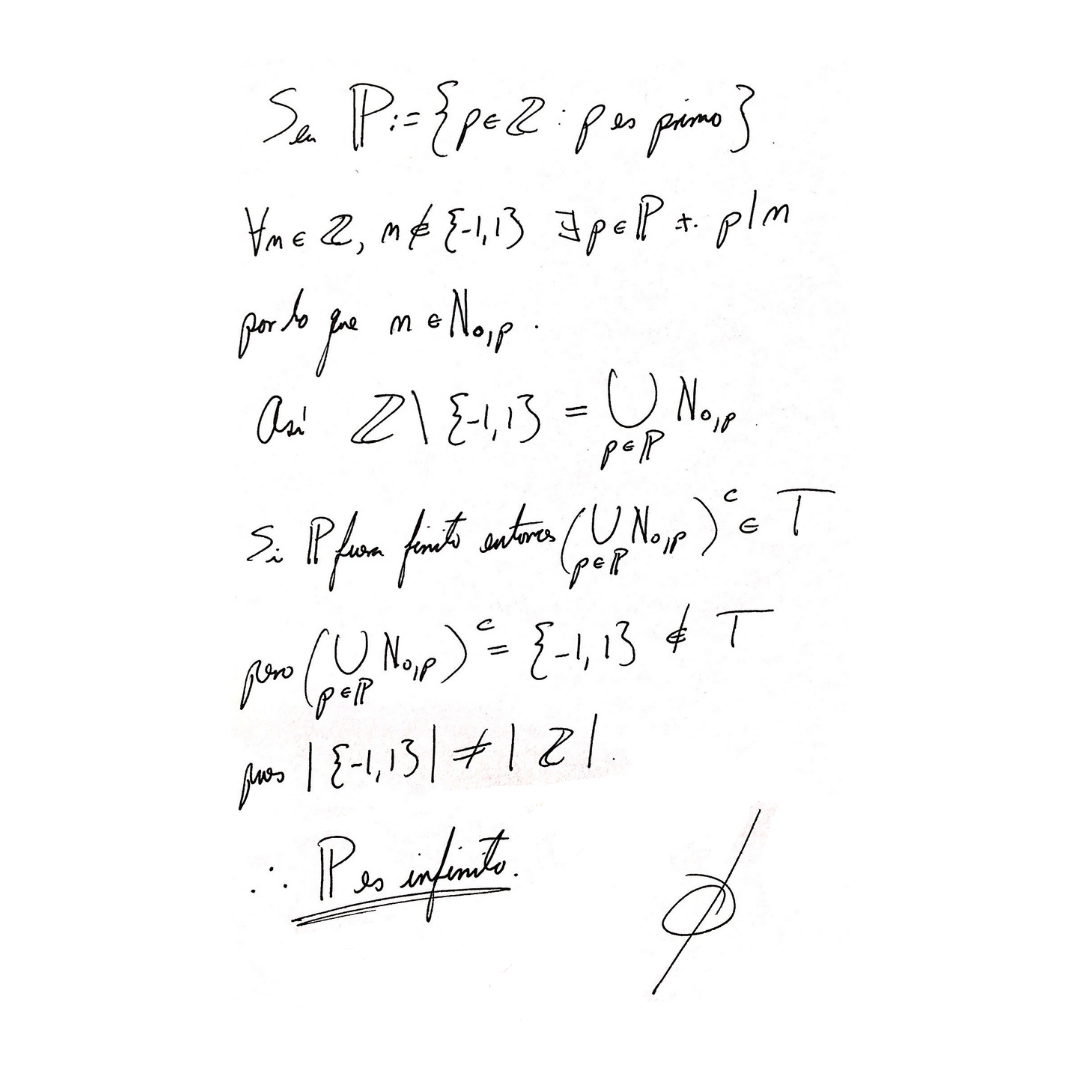 Sea ℙ:={p∈ℤ : p es primo}.
∀n∈ℤ, n∉{-1,1} ∃p∈ℙ t. p|n
por lo que n∈N₀,ₚ.
Así ℤ\{-1,1} = ⋃_{p∈ℙ} N₀,ₚ.
Si ℙ fuera finito entonces (⋃_{p∈ℙ} N₀,ₚ)ᶜ ∈ T
pero (⋃_{p∈ℙ} N₀,ₚ)ᶜ = {-1,1} ∉ T
pues |{-1,1}| ≠ |ℤ|.
∴ ℙ es infinito.